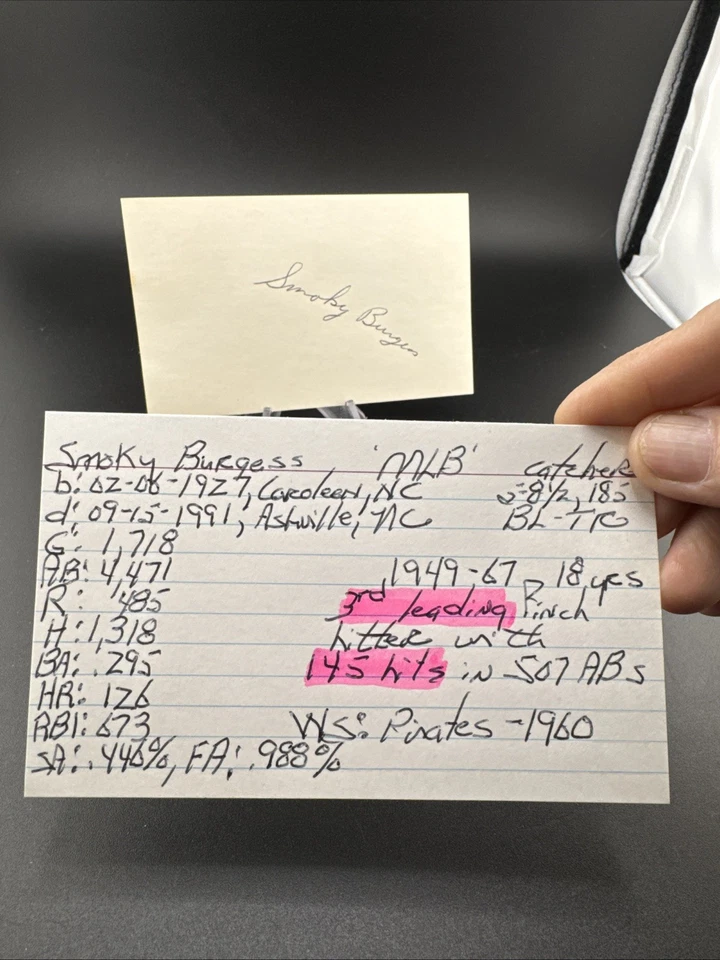 Smoky Burgess
Smoky Burgess 'MLB' catcher
b: 02-06-1927, Caroleen, NC 5-8 1/2, 185
d: 09-15-1991, Ashville, NC BL-TR
G: 1,718
AB: 4,471 1949-67 18 yrs
R: 485 3rd leading Pinch
H: 1,318 hitter with
BA: .295 145 hits in 507 ABs
HR: 126
RBI: 673 WS: Pirates - 1960
SA: .446%, FA: .988%